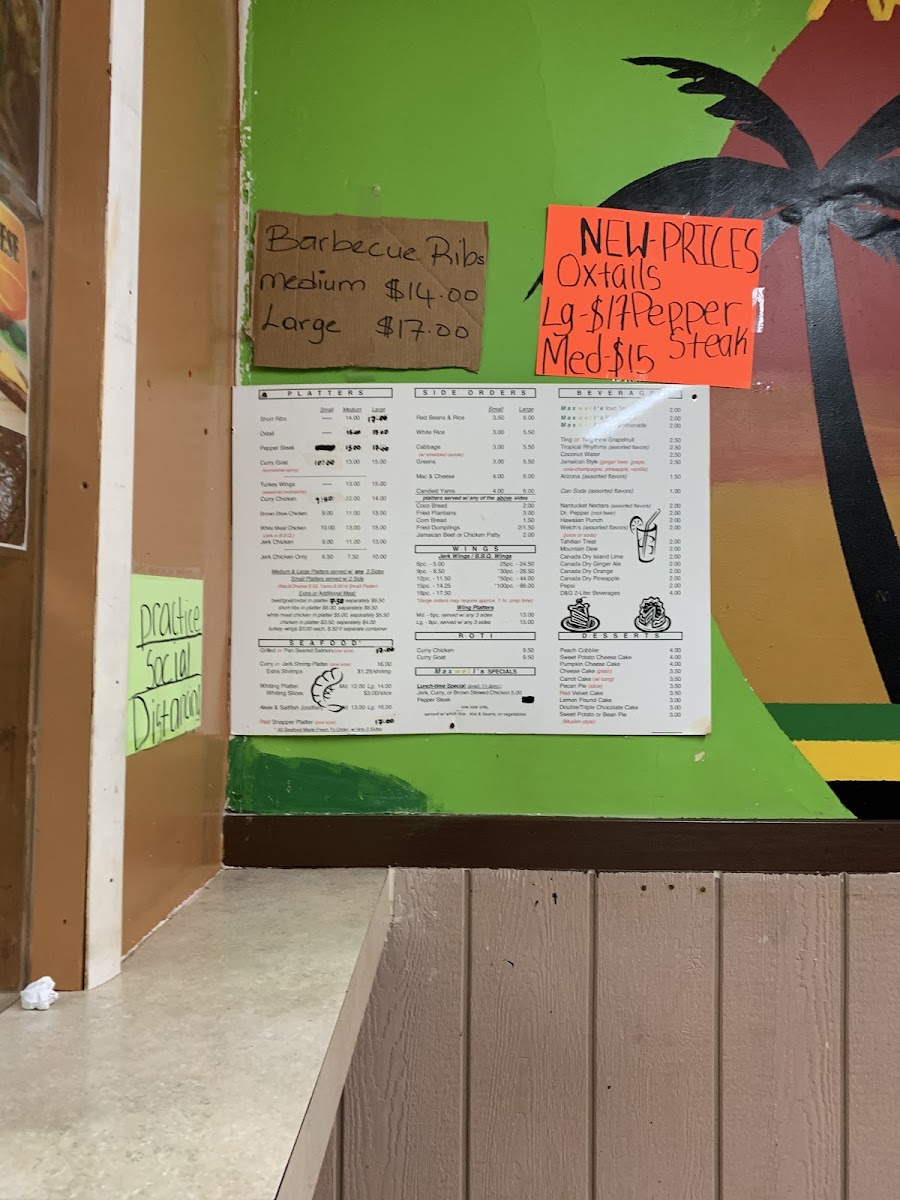 Barbecue Ribs
medium $14.00
Large $17.00
NEW-PRICES
Oxtails
Lg-$17 Pepper
Med-$15 Steak
Practice
Social
Distancing
PLATTERS
Small Medium Large
Short Ribs — 14.00 17.00
Oxtail —
Pepper Steak 13.00 17.00
Curry Goat 10.00 13.00 15.00
Turkey Wings — 13.00 15.00
(seasonal availability)
Curry Chicken 12.00 14.00
Brown Stew Chicken 9.00 11.00 13.00
White Meat Chicken 10.00 13.00 15.00
(Jerk or B.B.Q.)
Jerk Chicken 9.00 11.00 13.00
Jerk Chicken Only 6.50 7.50 10.00
Medium & Large Platters served w/ any 3 Sides
Small Platters served w/ 2 Side
Extra or Additional Meat:
beef/goat/oxtail in platter 7.50 separately $8.50
short ribs in platter $6.00, separately $8.50
white meat chicken in platter $5.00, separately $5.50
chicken in platter $3.50, separately $4.00
turkey wings $3.00 each, $.50 if separate container
SEAFOOD
Grilled or Pan Seared Salmon 17.00
Curry or Jerk Shrimp Platter 16.00
Extra Shrimps $1.25/shrimp
Whiting Platter Md. 12.00 Lg. 14.00
Whiting Slices $3.00/slice
Akee & Saltfish 13.00 Lg. 16.00
Red Snapper Platter 17.00
* All Seafood Made Fresh To Order, w/ Any 3 Sides
SIDE ORDERS
Small Large
Red Beans & Rice 3.50 6.00
White Rice 3.00 5.50
Cabbage 3.00 5.50
(w/ shredded carrots)
Greens 3.00 5.50
Mac & Cheese 4.00 6.00
Candied Yams 4.00 6.00
platters served w/ any of the above sides
Coco Bread 2.00
Fried Plantains 3.00
Corn Bread 1.50
Fried Dumplings 2/1.50
Jamaican Beef or Chicken Patty 2.00
WINGS
Jerk Wings / B.B.Q. Wings
6pc. - 5.00 25pc - 24.50
9pc. - 8.50 *30pc. - 28.50
12pc. - 11.50 *50pc. - 44.00
15pc. - 14.25 *100pc. - 86.00
18pc. - 17.50
*(large orders may require approx. 1 hr. prep time)
Wing Platters
Md. - 6pc. served w/ any 3 sides 13.00
Lg. - 8pc. served w/ any 3 sides 15.00
ROTI
Curry Chicken 9.50
Curry Goat 9.50
Maxwell's SPECIALS
Lunch-time Special
Jerk, Curry, or Brown Stewed Chicken 5.00
Pepper Steak
served w/ white rice, rice & beans, or vegetables
BEVERAGES
Maxwell's Iced 2.00
Maxwell's 2.00
Maxwell's 2.00
Ting or Ting Pink Grapefruit 2.50
Tropical Rhythms (assorted flavors) 2.50
Coconut Water 2.50
Jamaican Style (ginger beer, grape, 2.50
cola champagne, pineapple, vanilla)
Arizona (assorted flavors) 1.50
Can Soda (assorted flavors) 1.00
Nantucket Nectars (assorted flavors) 2.00
Dr. Pepper (root beer) 2.00
Hawaiian Punch 2.00
Welch's (assorted flavors) 2.00
(juice or soda)
Tahitian Treat 2.00
Mountain Dew 2.00
Canada Dry Island Lime 2.00
Canada Dry Ginger Ale 2.00
Canada Dry Orange 2.00
Canada Dry Pineapple 2.00
Pepsi 2.00
D&G 2-Liter Beverages 4.00
DESSERTS
Peach Cobbler 4.00
Sweet Potato Cheese Cake 4.00
Pumpkin Cheese Cake 4.00
Cheese Cake (plain) 3.50
Carrot Cake (w/ icing) 3.50
Pecan Pie (slice) 3.50
Red Velvet Cake 3.50
Lemon Pound Cake 3.00
Double/Triple Chocolate Cake 3.00
Sweet Potato or Bean Pie 3.00
(Muslim style)